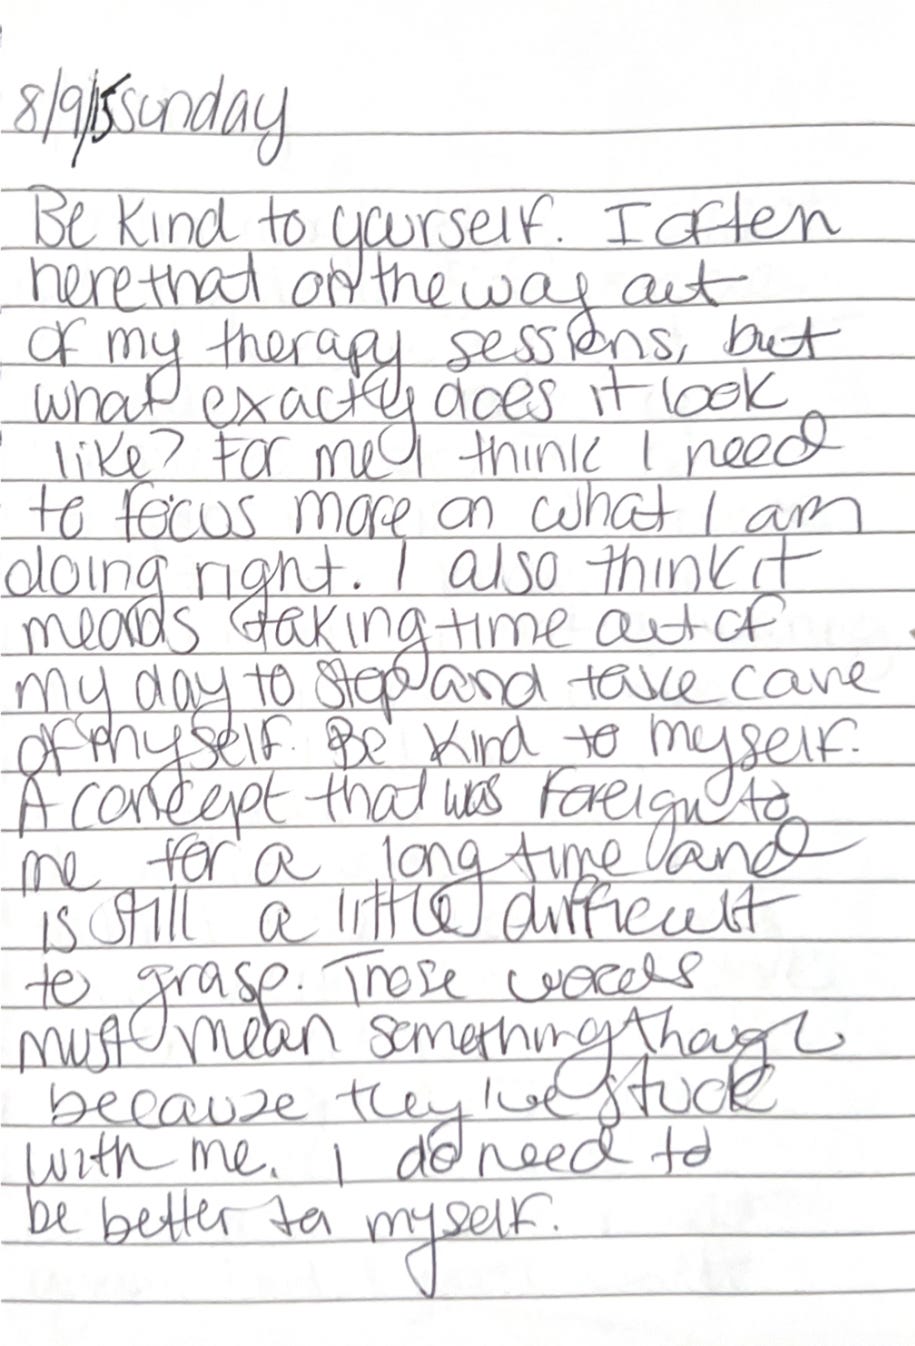 8/9/15 sunday
Be kind to yourself. I often
here that on the way out
of my therapy sessions, but
what exactly does it look
like? For me I think I need
to focus more on what I am
doing right. I also think it
means taking time out of
my day to stop and take care
of myself. Be kind to myself.
A concept that was foreign to
me for a long time and
is still a little difficult
to grasp. Those words
must mean something though
because they've stuck
with me. I do need to
be better to myself.